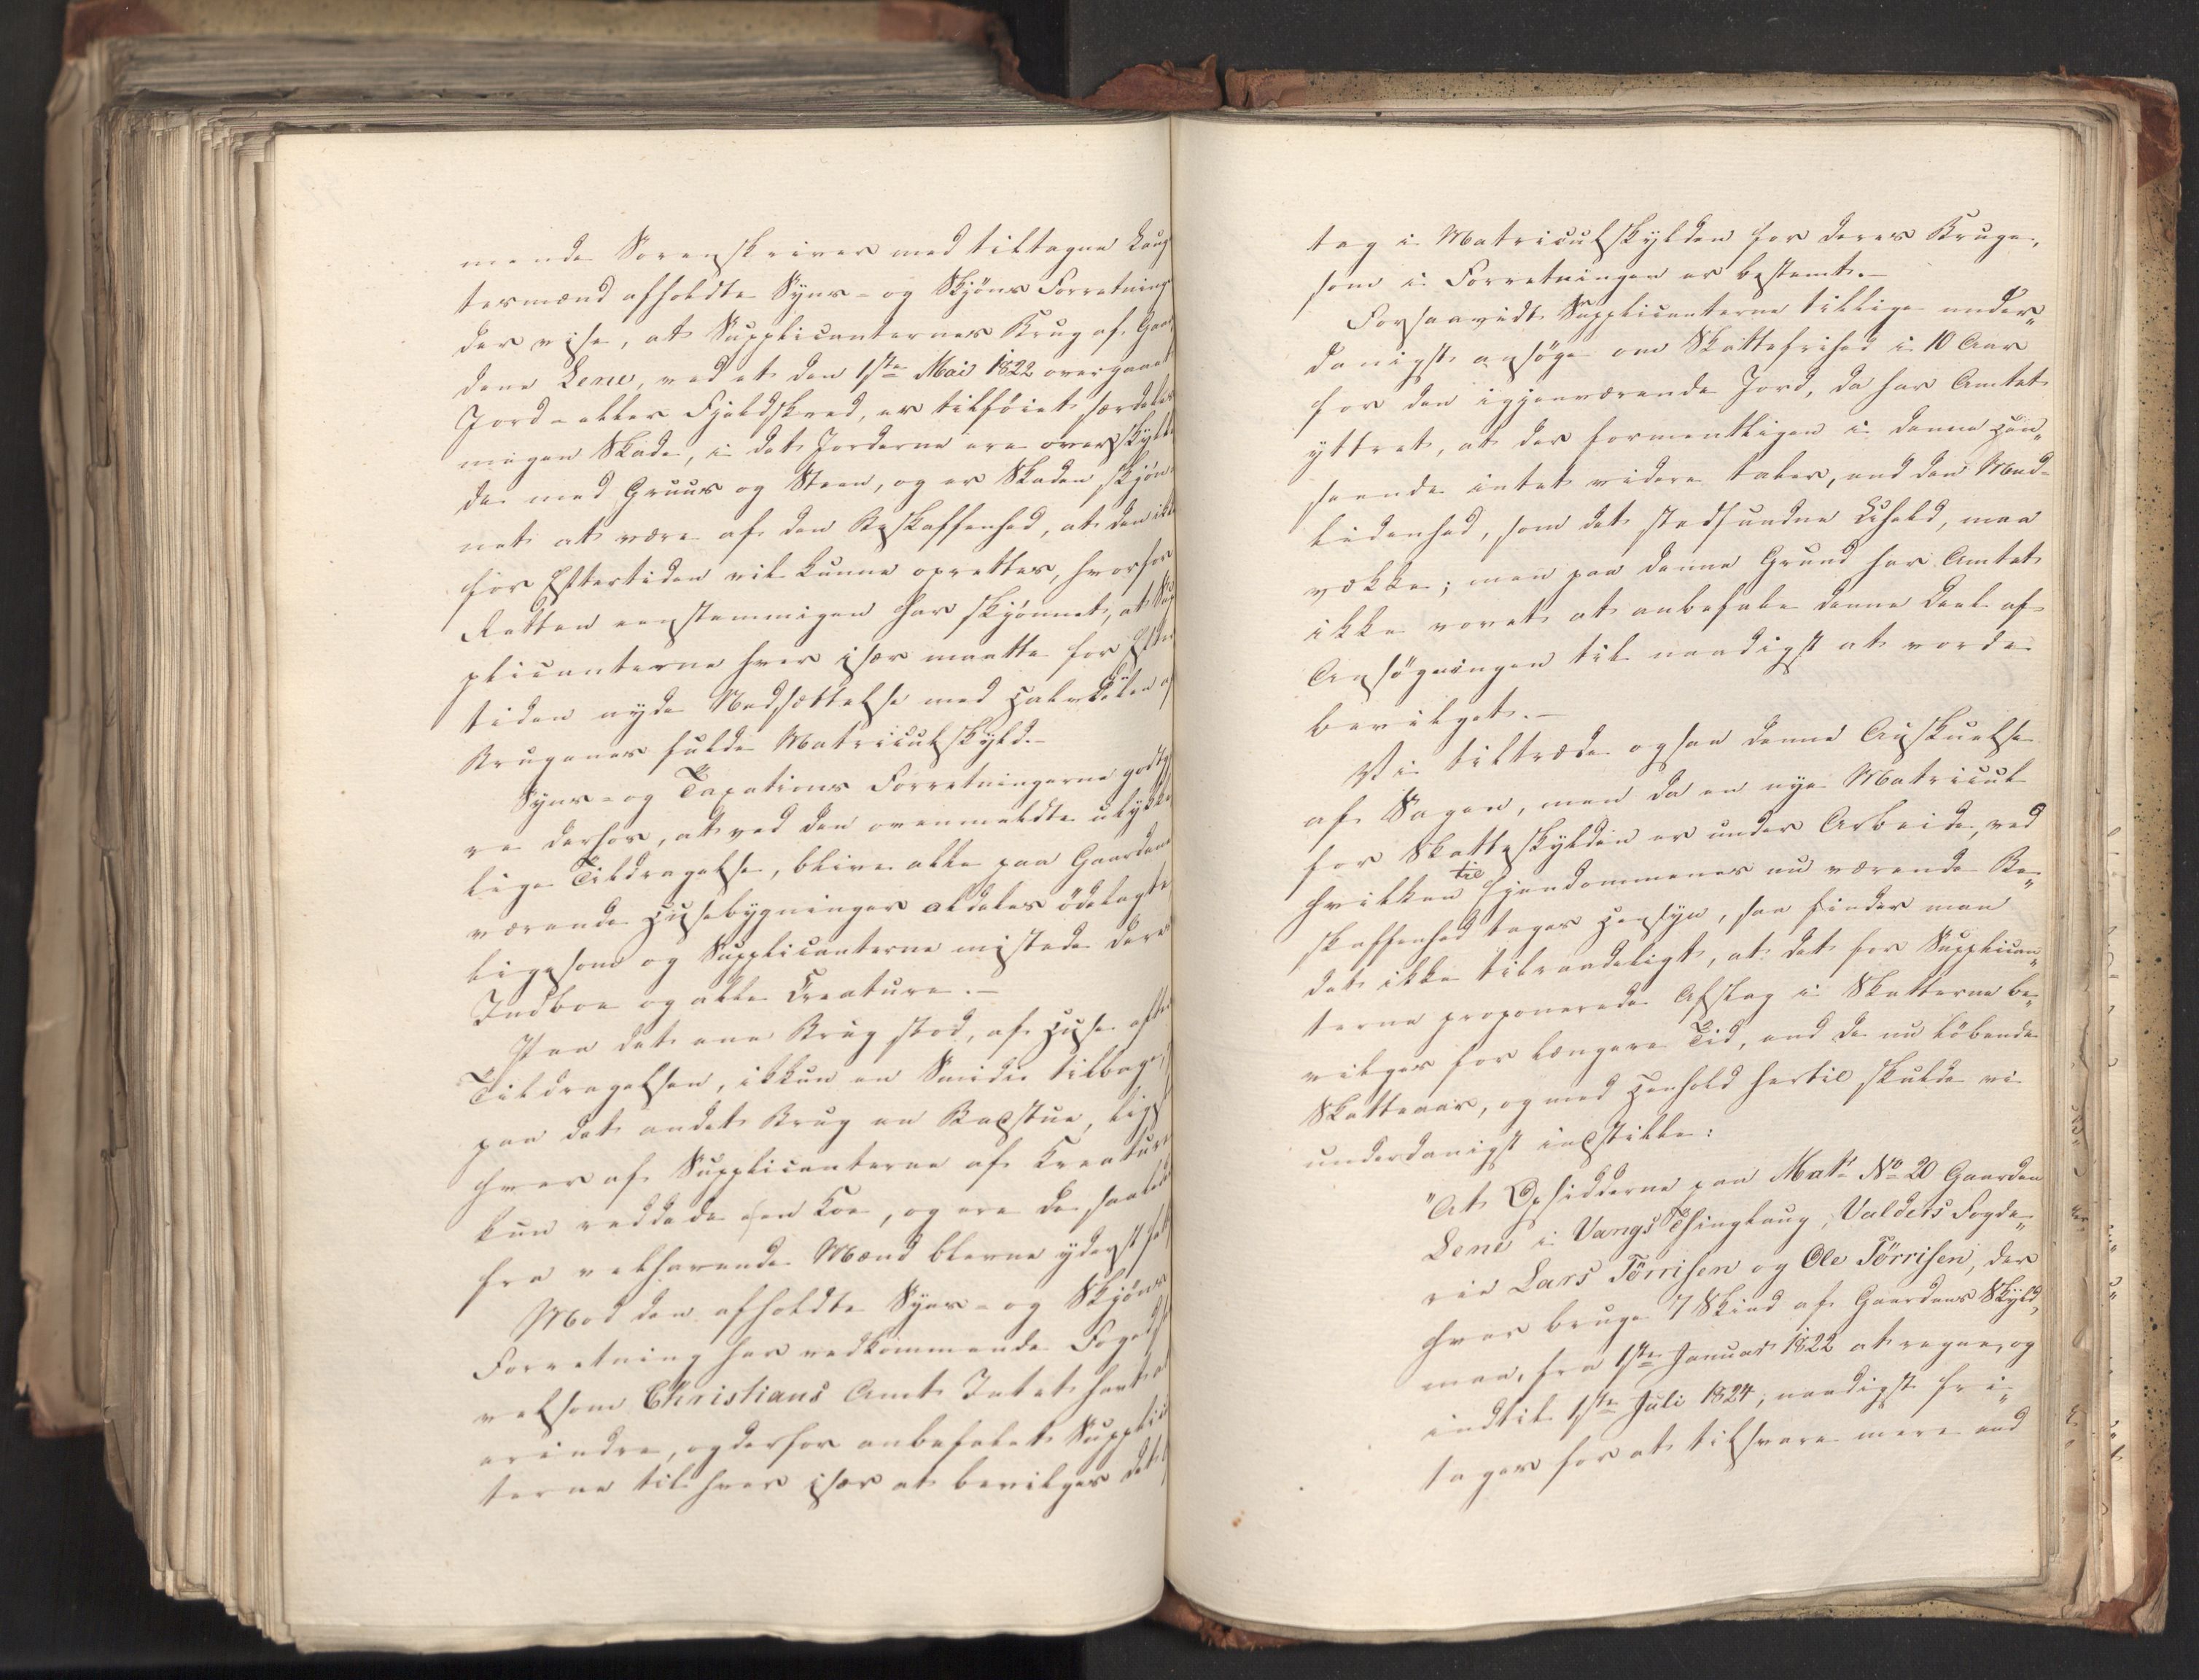 mende Sorenskriver med tiltagne Laug
tesmænd afholdte Syns- og Skjöns Forretning
der vise, at Supplicanternes Brug af Gaar
dene Lene, ved et den 1ste Mai 1822 overgaaet
Jord- eller Fjeldskred, er tilföiet særdeles
megen Skade, i det Jorderne ere overskyl
de med Gruus og Steen, og er Skaden skjön
net at være af den Beskaffenhed, at den ikke
för Eftertiden vil kunne oprettes, hvorfor
Retten eenstemmigen har skjönnet, at Sup
plicanterne hver især maatte for Efter
tiden nyde Nedsættelse med Halvdelen af
Brugenes fulde Matriculskyld.-
Syns- og Taxations Forretningerne godtgjö
re derhos, at ved den ovenmeldte ulykke
lige Tildragelse, bleve alle paa Gaardene
værende Huusebygninger aldeles ödelagte
ligesom og Supplicanterne mistede deres
Indboe og alle Creature.-
Paa det ene Brug stod, af Huse efter
Tildragelsen, ikkun en Smidie tilbage,
paa det andet Brug en Badstue, lige
hver af Supplicanterne af Kreature
kun reddede een Koe, og ere de saaledes
fra velhavende Mænd blevne yderst
Mod den afholdte Syns- og Skjöns
Forretning har vedkommende Foged
velsom Christians Amt Intet havt at
erindre, og derfor anbefalet Supplic
terne til hver især at bevilges det
tag i Matriculskylden for deres Bruge,
som i Forretningen er bestemt.-
Forsaavidt Supplicanterne tillige under„
danigst ansöge om Skattefrihed i 10 Aar
for den igjenværende Jord, da har Amtet
yttret, at der formentligen i denne Hen„
seende intet videre taler, end den Med-
lidenhed, som det stedfundne Uheld, maa
vække; men paa denne Grund har Amtet
ikke vovet at anbefale denne Deel af
Ansögningen til naadigst at vorde
bevilget.-
Vi tiltræde ogsaa denne Anskuelse
af Sagen, men da en nye Matricul
for Skatteskylden er under Arbeide, ved
hvilken til Ejendommenes nu værende Be„
skaffenhed tages Hensyn, saa finder man
det ikke tilraadeligt, at det for Supplican„
terne proponerede Afslag i Skatterne be„
vilges for længere Tid, end de nu löbende
Skatteaar, og med Henhold hertil skulde vi
underdanigst indstille:
"At Opsidderne paa Matr No 20 Gaarden
Lene i Vangs Thinglaug, Valders Fogde„
rie Lars Törrisen og Ole Törrisen, der
hver bruge 7 Skind af Gaardens Skyld,
maa, fra 1ste Januar 1822 at regne, og
indtil 1ste Juli 1824, naadigst fri„
tages for at tilsvare mere end